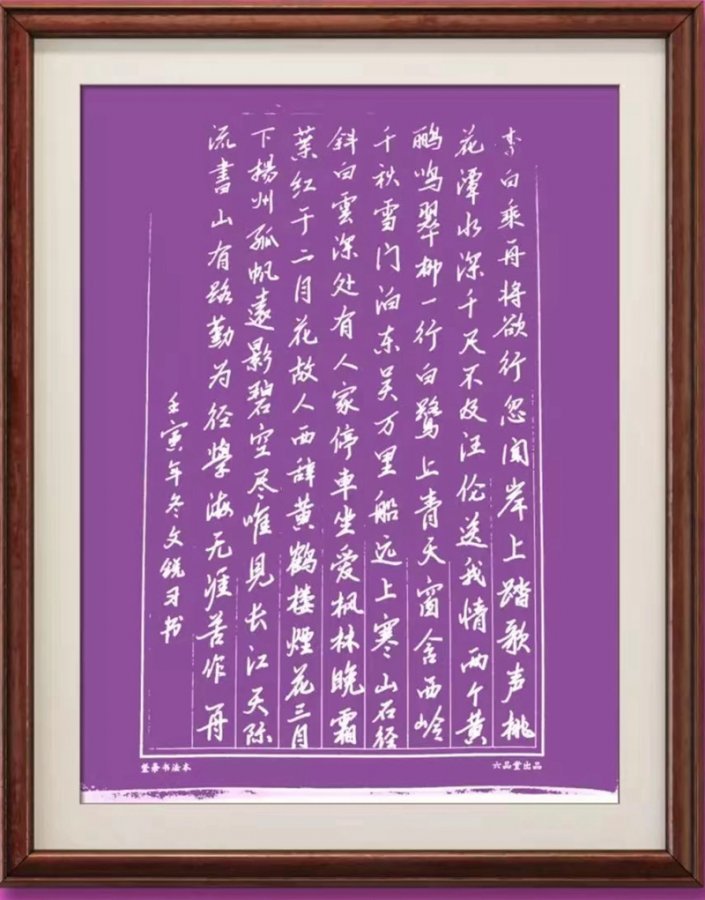 李白乘舟将欲行忽闻岸上踏歌声桃
花潭水深千尺不及汪伦送我情两个黄
鹂鸣翠柳一行白鹭上青天窗含西岭
千秋雪门泊东吴万里船远上寒山石径
斜白雲深处有人家停車坐爱枫林晚霜
葉红于二月花故人西辞黄鹤楼煙花三月
下揚州孤帆遠影碧空尽唯見长江天际
流書山有路勤为径學海无涯苦作舟
壬寅年冬文锐习书
六品堂出品
竖条书法本